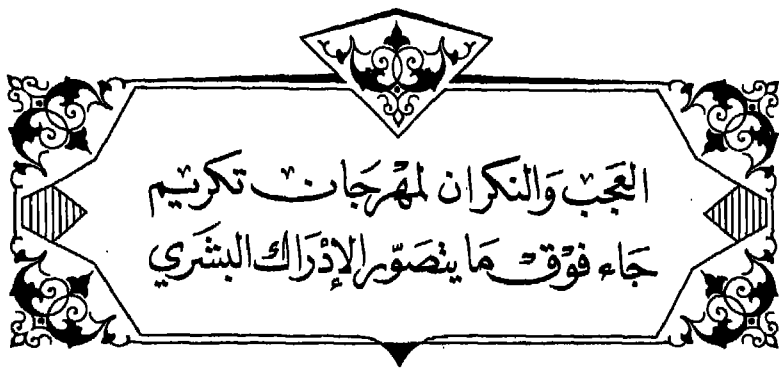 العجب والنكران لمهرجان تكريم
جاء فوق ما يتصوّر الإدراك البشري